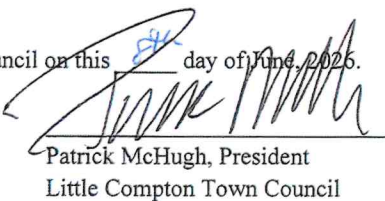 uncil on this 8th day of June, 2026.
Patrick McHugh, President
Little Compton Town Council